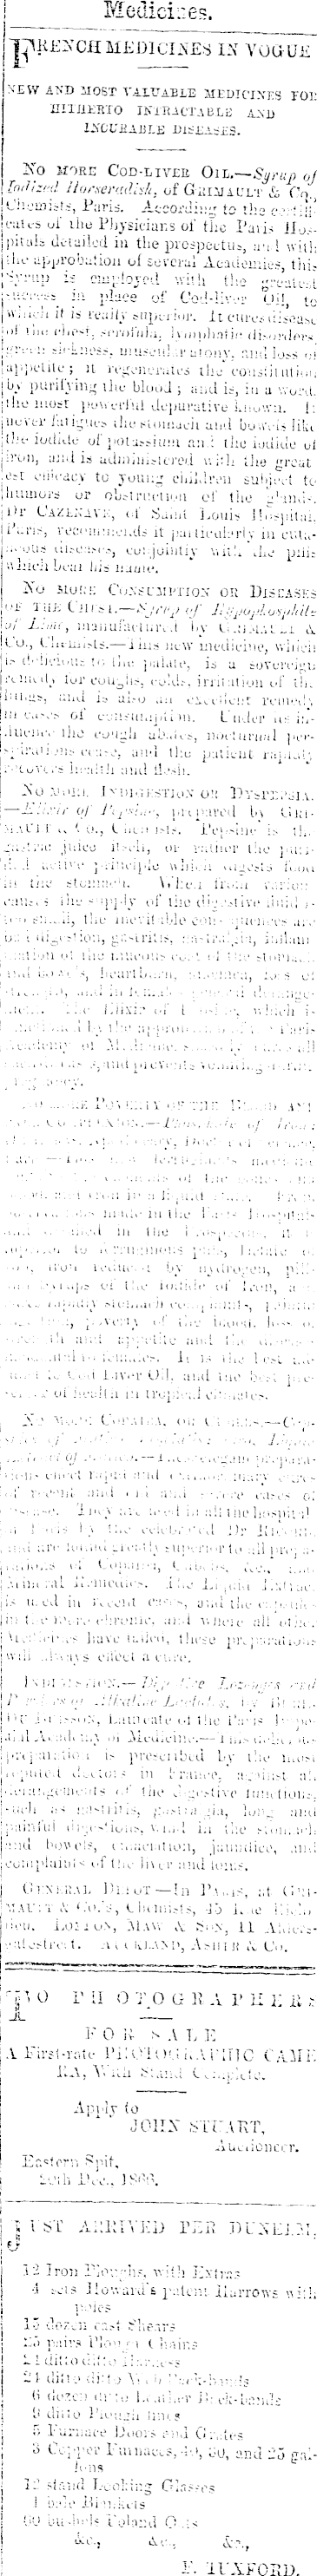 Medicines.
FRENCH MEDICINES IN VOGUE
NEW AND MOST VALUABLE MEDICINES FOR
HITHERTO INTRACTABLE AND
INCURABLE DISEASES.
No MORE COD-LIVER OIL.—Syrup of
Iodized Horseradish, of GRIMAULT & Co.,
Chemists, Paris. According to the certifi-
cates of the Physicians of the Paris Hos-
pitals detailed in the prospectus, and with
the approbation of several Academies, this
Syrup is employed with the greatest
success in place of Cod-liver Oil, to
which it is really superior. It cures disease
of the chest, scrofula, lymphatic disorders,
green sickness, muscular atony, and loss of
appetite; it regenerates the constitution
by purifying the blood; and is, in a word,
the most powerful depurative known. It
never fatigues the stomach and bowels like
the iodide of potassium and the iodide of
iron, and is administered with the great
est efficacy to young children subject to
humors or obstruction of the glands.
Dr CAZENAVE, of Saint Louis Hospital,
Paris, recommends it particularly in cuta-
neous diseases, conjointly with the pills
which bear his name.
No MORE CONSUMPTION OR DISEASES
OF THE CHEST.—Syrup of Hypophosphite
of Lime, manufactured by GRIMAULT &
Co., Chemists.—This new medicine, which
is delicious to the palate, is a sovereign
remedy for coughs, colds, irritation of the
lungs, and is also an excellent remedy
in cases of consumption. Under its in-
fluence the cough abates, nocturnal per-
spirations cease, and the patient rapidly
recovers health and flesh.
No MORE INDIGESTION OR DYSPEPSIA.
—Elixir of Pepsine, prepared by GRI-
MAULT & Co., Chemists. Pepsine is the
gastric juice itself, or rather the puri-
fied active principle which digests food
in the stomach. When from various
causes the supply of the digestive fluid is
too small, the inevitable consequences are
bad digestion, gastritis, gastralgia, inflam
mation of the mucous coat of the stomach
and bowels, heartburn, loss of
strength, and in females general derange-
ment. The Elixir of Pepsine, which is
by the Paris
Academy of Medicine, all
and prevents vomiting
pregnancy.
No MORE POVERTY OF THE BLOOD AND
of Iron
of the
iron in a liquid
made in the Paris Hospitals
in the Prospectus, it is
superior to ferruginous pills, lactate of
iron, iron reduced by hydrogen, pills
and syrups of the iodide of iron,
rapidly stomach complaints,
poverty of the blood, loss of
strength and appetite and the
to females. It is the best
to Cod Liver Oil, and the best pre-
server of health in tropical climates.
No MORE COPAIBA, OR CUBEBS.—Cap-
of Matico.—These elegant prepara-
tions effect rapid and extraordinary cures
of recent and old and severe cases of
disease. They are used in all the hospitals
of Paris by the celebrated Dr RICORD,
and are found greatly superior to all prepa-
rations of Copaiba, Cubebs, &c., and
Mineral Remedies. The Liquid Extract
is used in recent cases, and the capsules
in the more chronic, and where all other
Medicines have failed, these preparations
will always effect a cure.
INDIGESTION.—Digestive Lozenges and
Powders of Alkaline Lactates, by BURIN
DU BUISSON, Laureate of the Paris Impe-
rial Academy of Medicine.—This delicious
preparation is prescribed by the most
reputed doctors in France, against all
derangements of the digestive functions,
such as gastritis, gastralgia, long and
painful digestions, wind in the stomach
and bowels, emaciation, jaundice, and
complaints of the liver and loins.
GENERAL DEPOT—In PARIS, at GRI-
MAULT & Co.'s, Chemists, 45 Rue Riche-
lieu. LONDON, MAW & SON, 11 Alders-
gatestreet. AUCKLAND, ASHER & Co.
TO PHOTOGRAPHERS
FOR SALE
A First-rate PHOTOGRAPHIC CAME
RA, With Stand Complete.
Apply to
JOHN STUART,
Auctioneer.
Eastern Spit,
Dec., 1866.
JUST ARRIVED PER DUNELM,
12 Iron Ploughs, with Extras
4 sets Howard's patent Harrows with
poles
15 dozen cast Shears
25 pairs Plough Chains
ditto ditto Harness
24 ditto ditto Back-bands
6 dozen ditto Leather Back-bands
9 ditto Plough lines
5 Furnace Doors and Grates
3 Copper Furnaces, 40, 30, and 25 gal-
lons
12 stand Looking Glasses
1 bale Blankets
60 bushels Poland Oats
&c., &c., &c.,
F. TUXFORD.